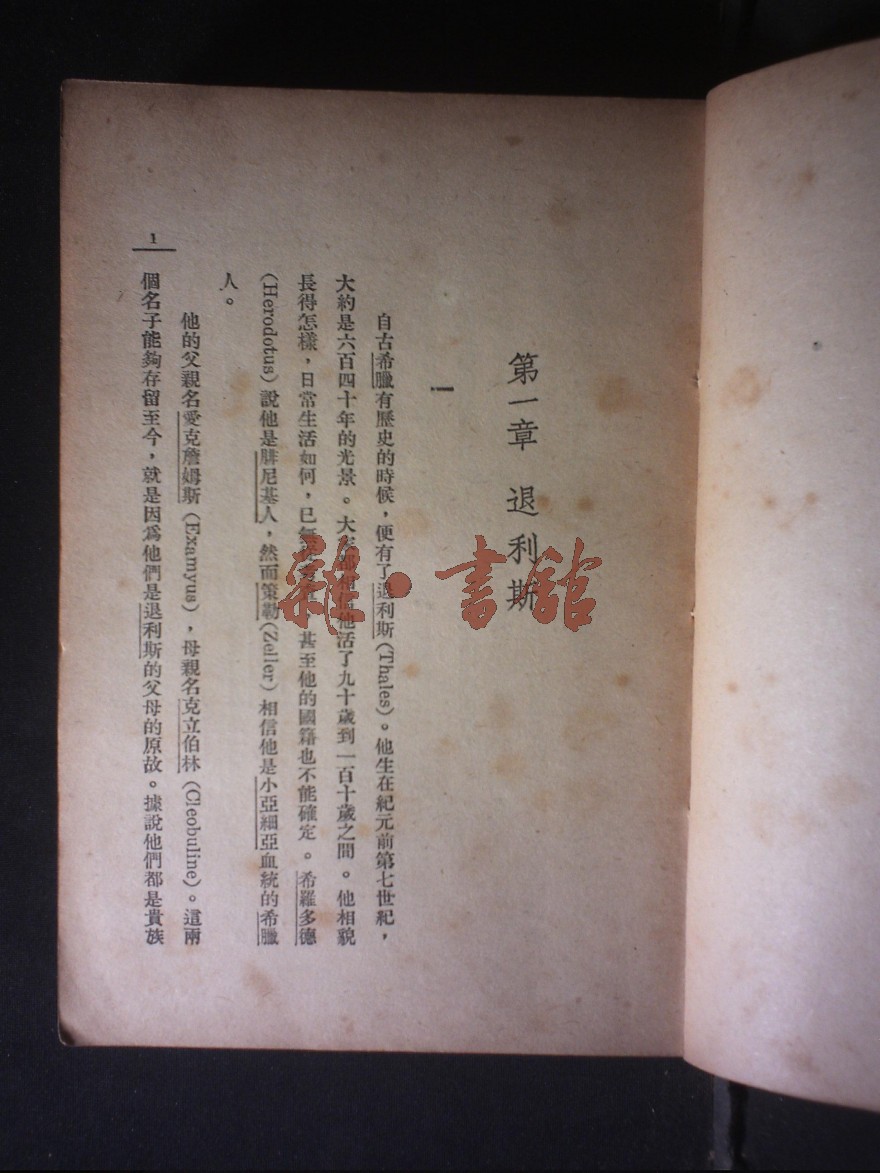 第一章 退利斯
一
自古希臘有歷史的時候，便有了退利斯(Thales)。他生在紀元前第七世紀，
大約是六百四十年的光景。大家都相信他活了九十歲到一百十歲之間。他相貌
長得怎樣，日常生活如何，已無 甚至他的國籍也不能確定。希羅多德
(Herodotus)說他是腓尼基人，然而策勒(Zeller)相信他是小亞細亞血統的希臘
人。
他的父親名愛克詹姆斯(Examyus)，母親名克立伯林(Cleobuline)。這兩
個名子能夠存留至今，就是因爲他們是退利斯的父母的原故。據說他們都是貴族
1
雜·書館